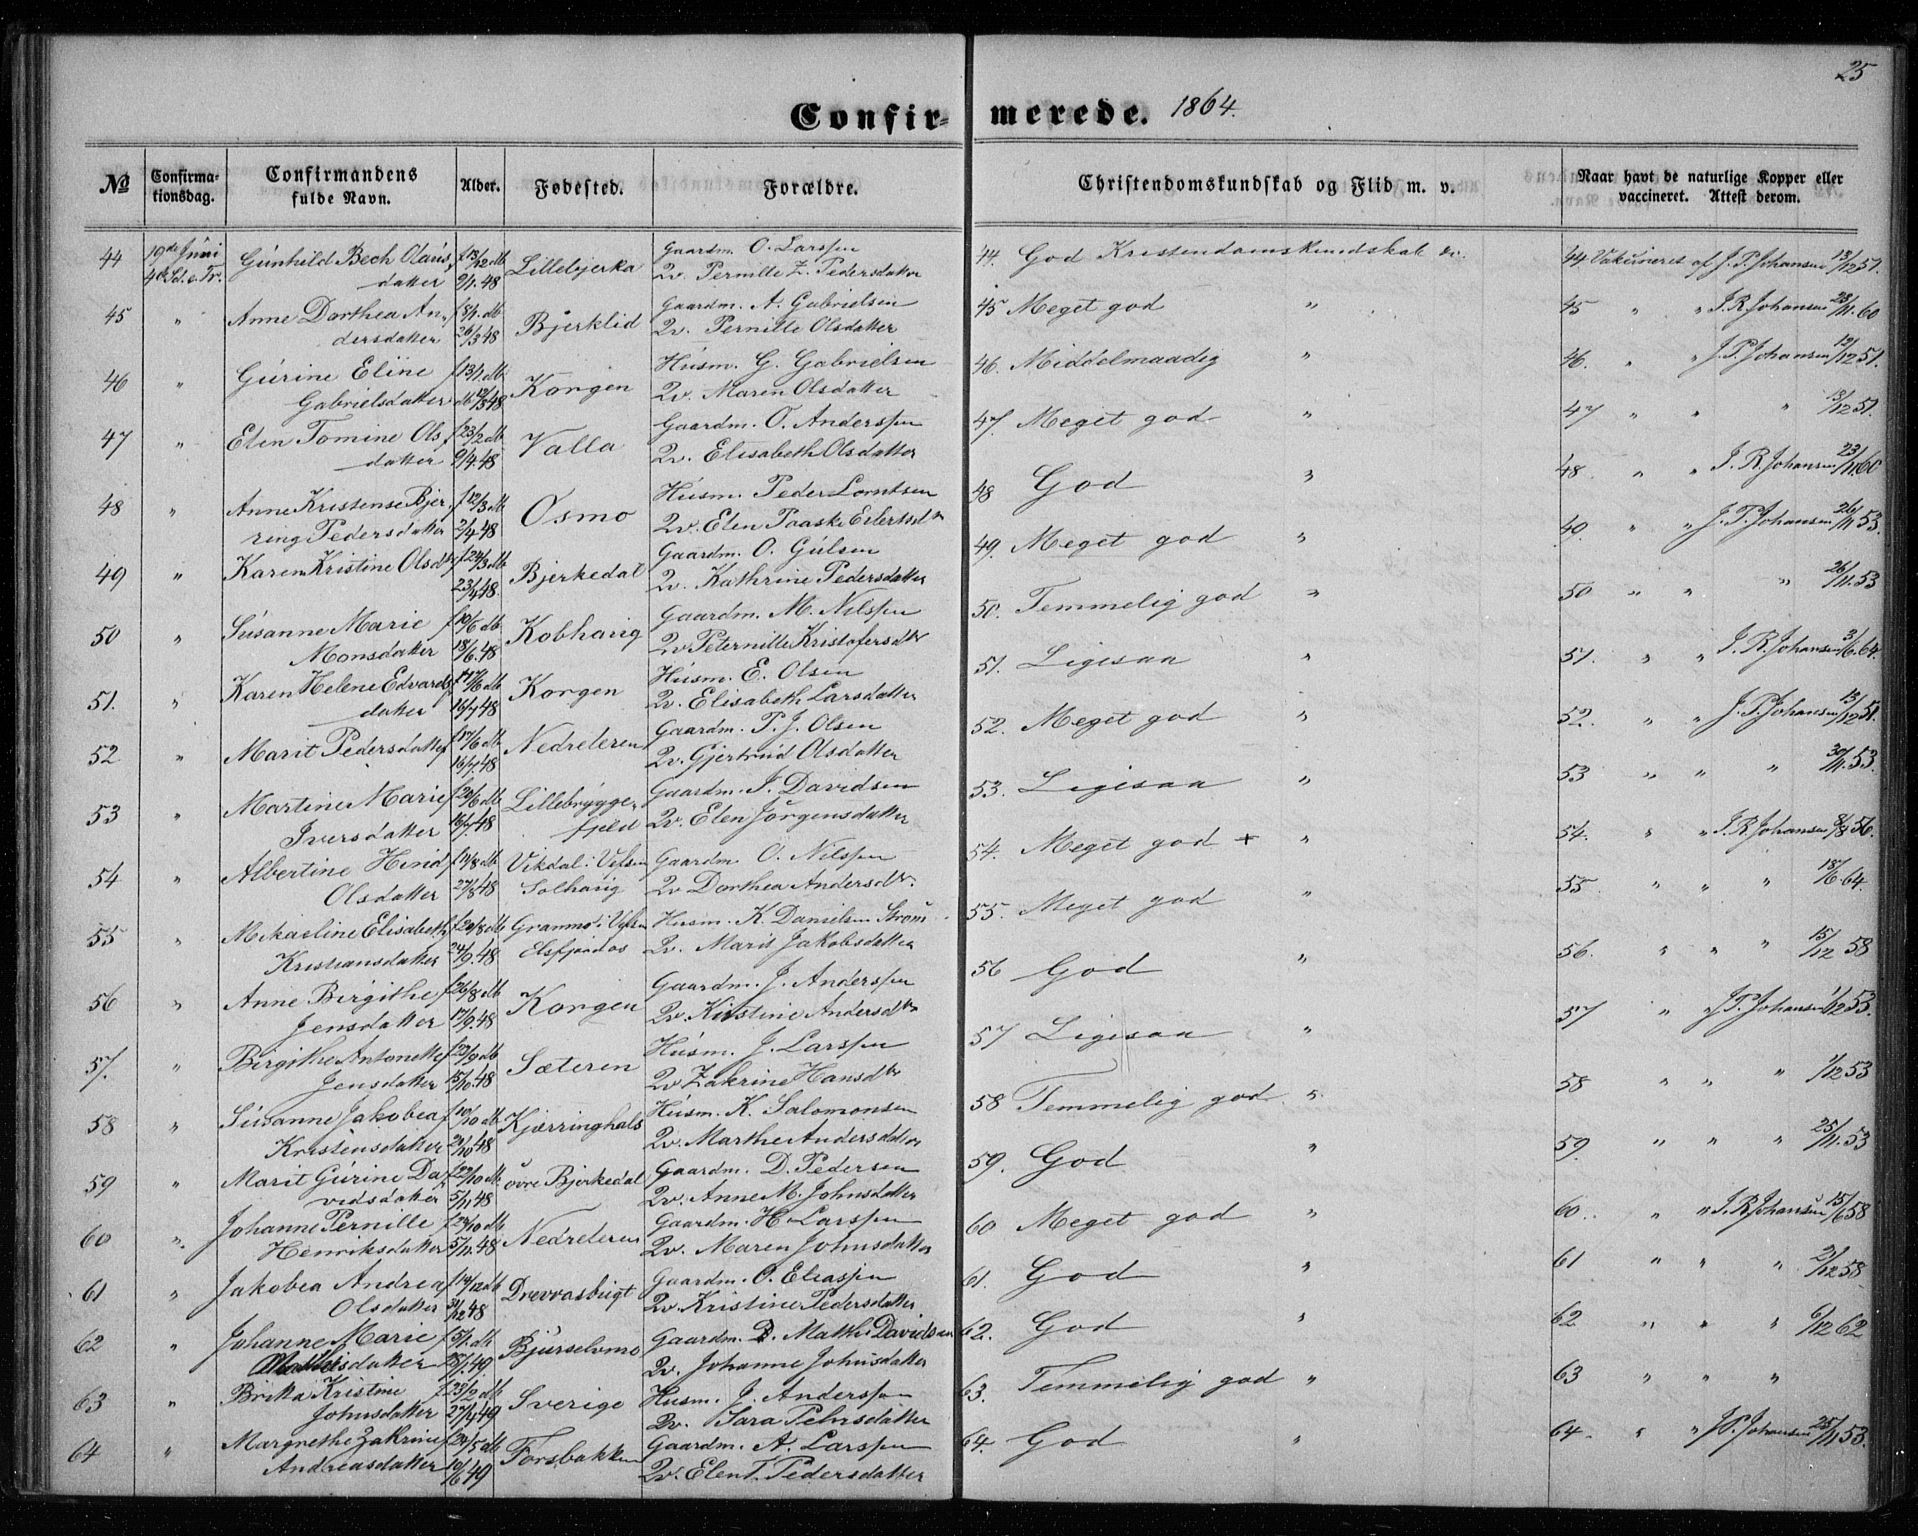 25
Confirmerede. 1864.
No
Confirmationsdag.
Confirmandens fulde Navn.
Alder.
Fødested.
Forældre.
Christendomskundskab og Flid m. v.
Naar havt de naturlige Kopper eller vaccineret. Attest derom.
44 19de Juni Gunhild Bech Olaus- f 13/12 db Lillebjerka Gaardm. O. Larssen 44. God Kristendomskundskab 44. Vakcineret af J. P. Johansen 13/12 51.
4de Sd. e. Tr. datter 9/1.48 Qv. Pernille Z. Pedersdatter
45 " Anne Dorthea An- f 8/1. db Bjerklid Gaardm. A. Gabrielsen 45 Meget god " 45 " " J. R. Johansen 23/11.60
dersdatter 26/3 48 Qv. Pernille Olsdatter
46 " Gurine Eline f 13/1. db Korgen Husm. G. Gabrielsen 46. Middelmaadig " 46. " " J. P. Johansen 13/12 51.
Gabrielsdatter 48 Qv. Maren Olsdatter
47 " Elen Tomine Ols- f 23/2 db Valla Gaardm. O. Anderssen 47. Meget god " 47 " " " 13/12 51.
datter 9/4.48 Qv. Elisabeth Olsdatter
48 " Anne Kristense Bjer- f 12/3 db Osmo Husm. Peder Lorntsen 48 God " 48. " " J. R. Johansen 23/11 60
ring Pedersdatter 2/4 48 Qv. Elen Paaske Eilertsdtr
49 " Karen Kristine Olsdtr f 24/3 db Bjerkedal Gaardm. O. Gulsen 49. Meget god " 49. " " J. P. Johansen 26/11 53.
23/4 48. Qv. Kathrine Pedersdatter
50 " Susanne Marie f 10/6 db Kobhaug Gaardm. M. Nilssen 50. Temmelig god " 50 " " " 26/11. 53
Monsdatter 18/6.48 Qv Peternille Kristofersdtr
51. " Karen Helene Edvards- f 17/6 db Korgen Husm. E. Olsen 51. Ligesaa " 51. " " J. R. Johansen 3/6. 64.
datter 16/7 48 Qv. Elisabeth Larsdatter
52 " Marit Pedersdatter f 17/6 db Nedreleren Gaardm. P. J. Olsen 52. Meget god " 52. " " J. P. Johansen 13/12 51.
16/7.48 Qv. Gjertrud Olsdatter
53 " Martine Marie f 20/6 db Lillebrygge- Gaardm. I. Davidsen 53. Ligesaa " 53 " " " 30/11. 53.
Iversdatter 16/7.48 fjeld Qv. Elen Jörgensdatter
54 " Albertine Hind f 14/8 db Vikdal i Vefsen Gaardm. O. Nilssen 54. Meget god + " 54. " " J. R. Johansen 8/8 56.
Olsdatter 27/8 48 Solhaug Qv Dorthea Andersdtr.
55 " Mikaeline Elisabeth f 20/8 db Granmo i Vefsen Husm. K. Danielsen Strøm 55. Meget god " 55 " " " 18/6 64.
Kristiansdatter 24/9.48 Elsfjordos Qv. Marit Jakobsdatter
56 " Anne Birgithe f 26/8 db Korgen Gaardm. J. Anderssen 56 God " 56. " " " 15/12 58
Jensdatter 17/9.48 Qv. Kirstine Andersdtr
57. " Birgithe Antonette f 22/9 db Sæteren Husm. J. Larssen 57 Ligesaa " 57 " J. P. Johansen 1/12 53.
Jensdatter 15/10.48 Qv Zakrine Hansdtr
58 " Susanne Jakobea f 10/10 db Kjærringhals Husm. K. Salomonsen 58 Temmelig god " 58 " " " 1/12 53
Kristensdatter 29/10 48 Qv. Marthe Andersdatter
59 " Marit Gurine Da- f 22/10 db. övre Bjerkedal Gaardm. D. Pedersen 59. God " 59. " " " 25/11. 53
vidsdatter 5/11 48 Qv. Anne M. Johnsdatter
60 " Johanne Pernille f 24/10 db Nedreleren Gaardm. H. Larssen 60 Meget god " 60. " " J. R. Johansen 15/6 58
Henriksdatter 5/11.48 Qv. Maren Johnsdatter
61 " Jakobea Andrea f 14/12 db Drevvasbugt Gaardm. O. Eliassen 61. God " 61 " " " 2/12 58
Olsdatter 31/12 48 Qv. Kristine Pedersdatter
62 " Johanne Marie f 5/1. db Bjurselvmo Gaardm. D. Matth. Davidsen 62. God " 62 " " " 6/12 62
Mathisdatter 28/1.49. Qv. Johanne Johnsdatter
63 " Brita Kristine f 23/2 db Sverige Husm. J. Anderssen 63. Temmelig god " 63 " " "
Johnsdatter 27/4 49 Qv. Sara Pehrsdatter
64 " Margrethe Zakrine f 24/5 db Forsbakken Gaardm. A. Larssen 64. God " 64. " " J. P. Johansen 25/11 53.
Andreasdatter 10/6 49 Qv. Elen T. Pedersdatter